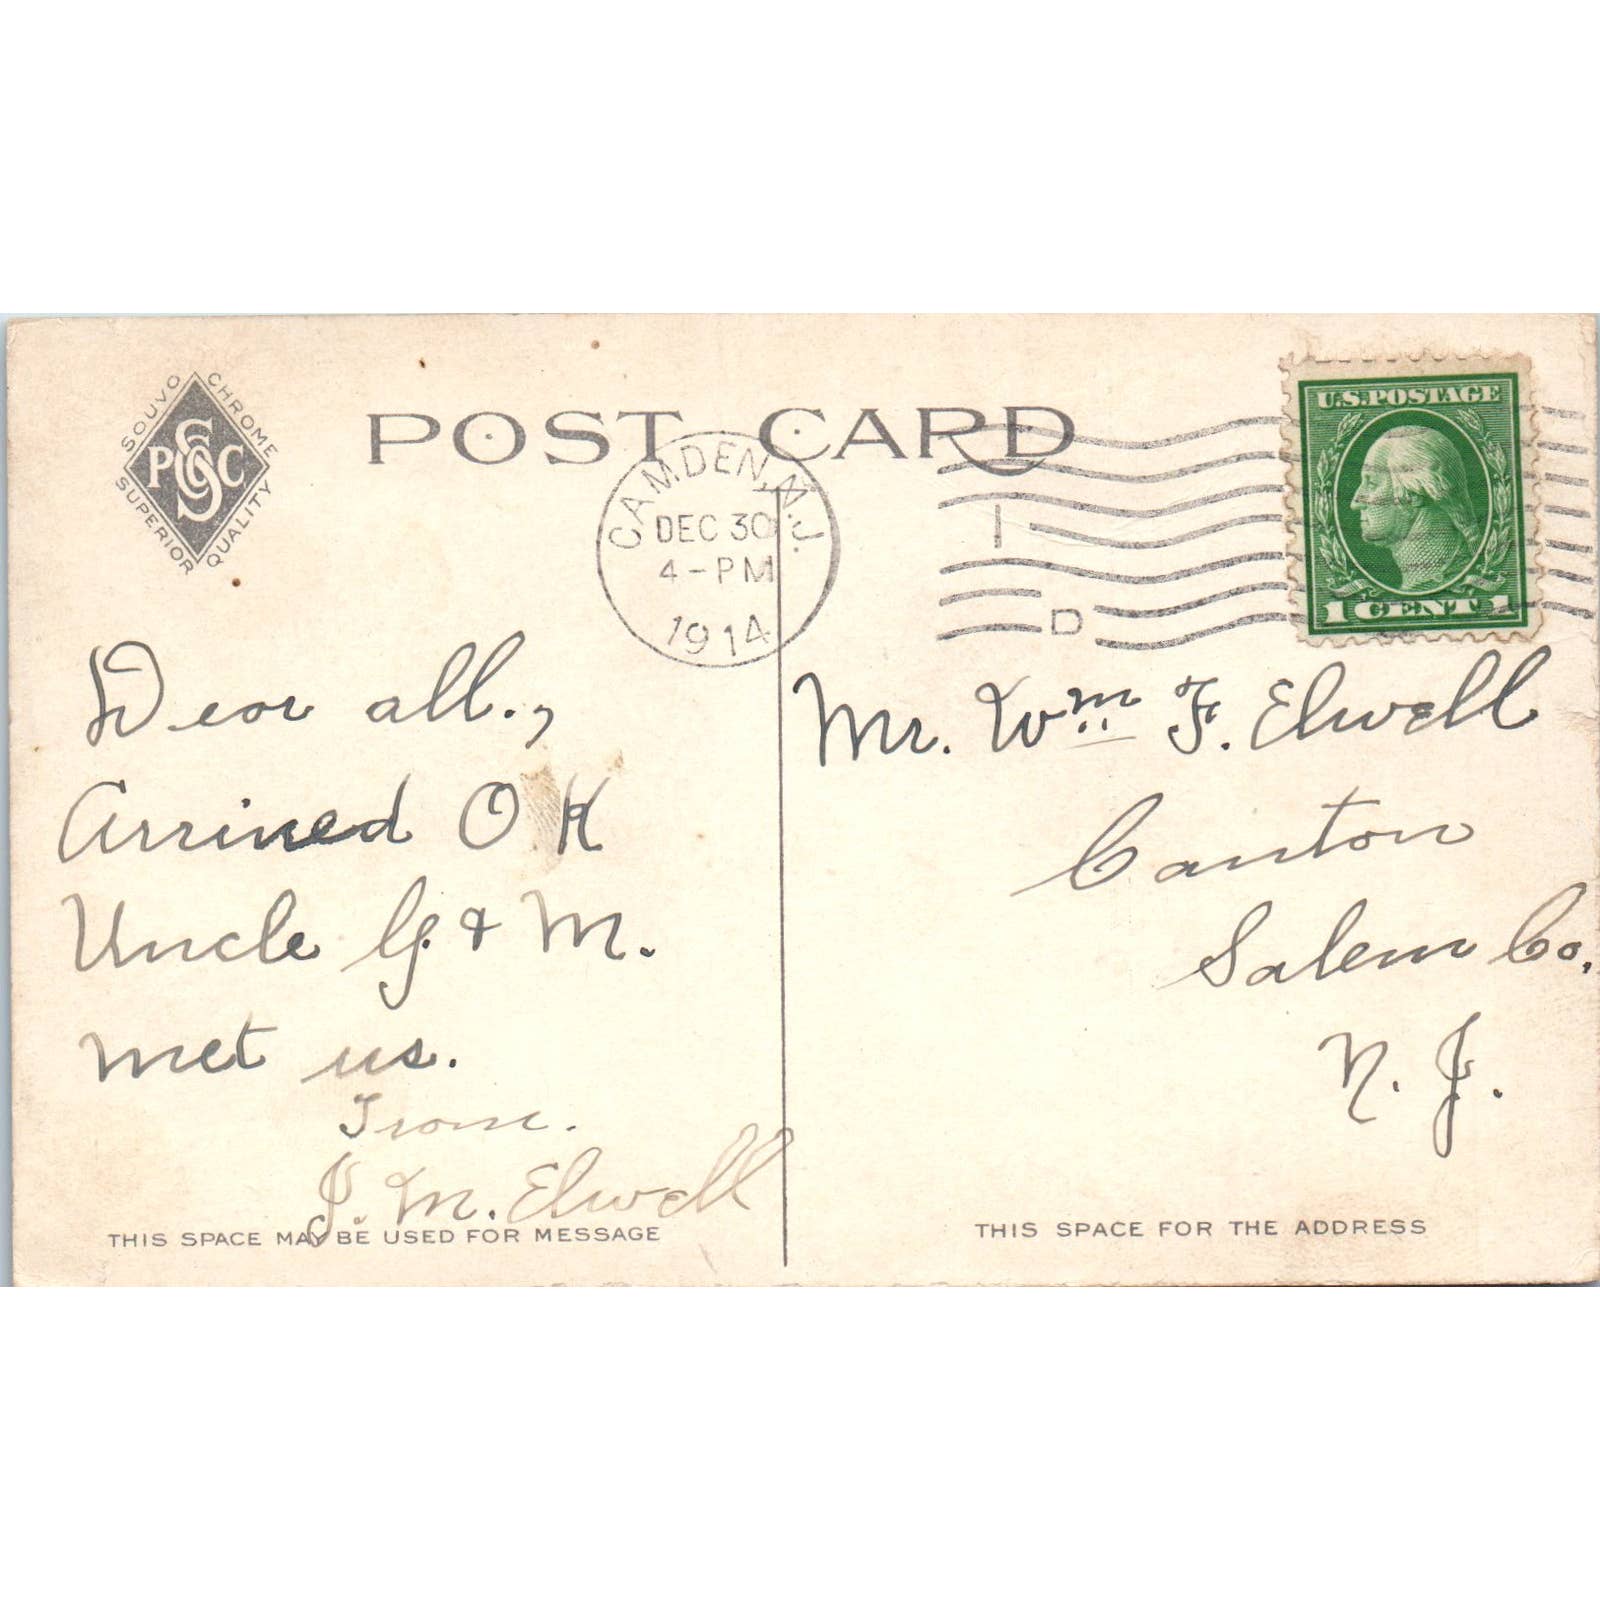 SOUVO CHROME
PSCC
SUPERIOR QUALITY
POST CARD
CAMDEN, N.J.
DEC 30
4-PM
1914
1
D
U.S. POSTAGE
1 CENT 1
Dear all.,
Arrived O.K
Uncle G. & M.
met us.
From.
J. M. Elwell
THIS SPACE MAY BE USED FOR MESSAGE
Mr. Wm F. Elwell
Canton
Salem Co,
N. J.
THIS SPACE FOR THE ADDRESS